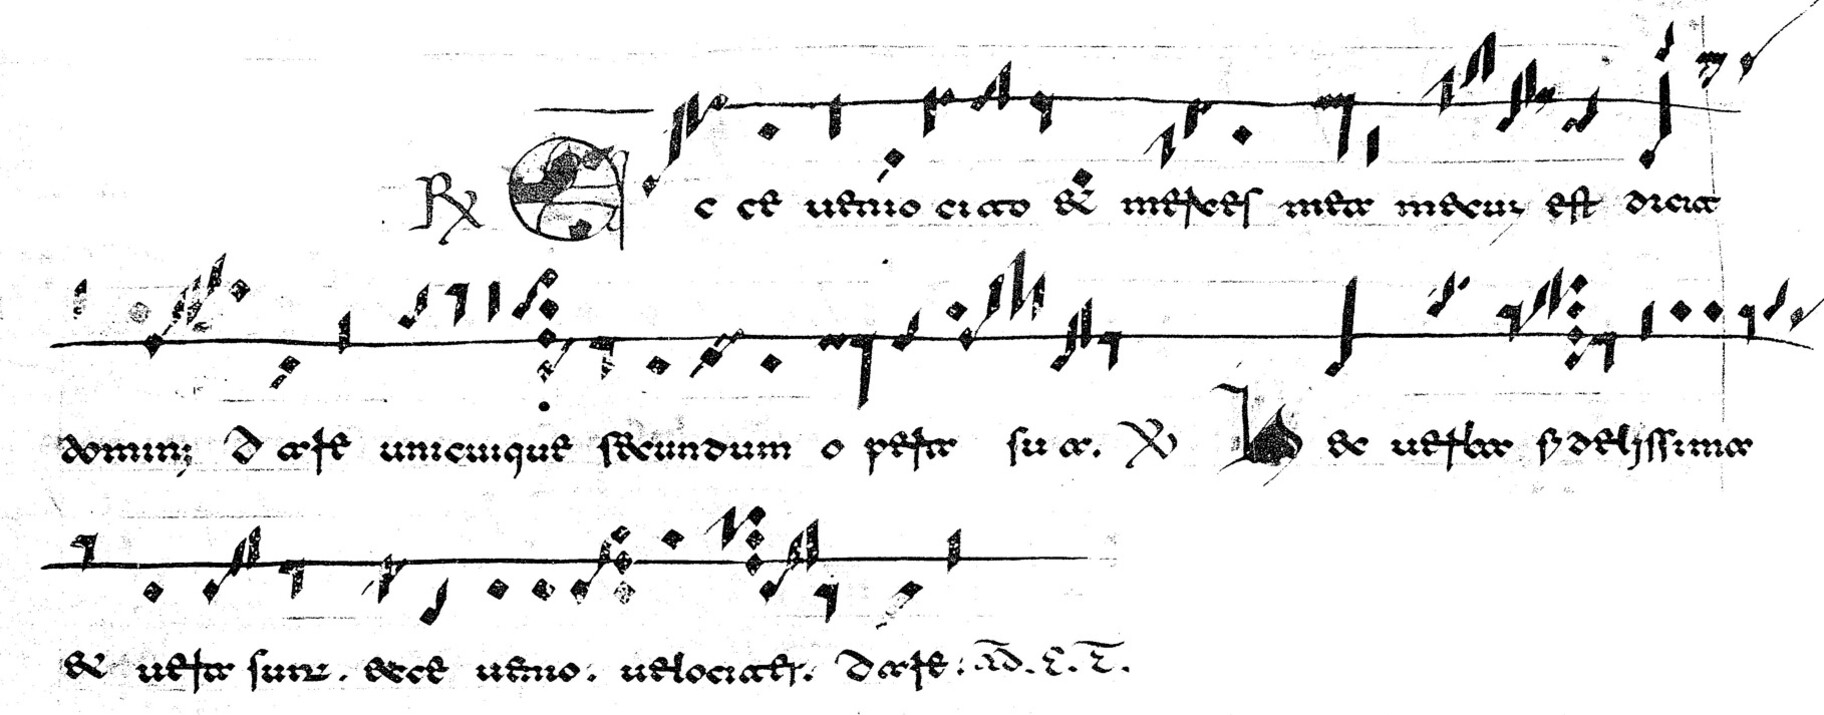 R E c ce uenio cito & merces mea mecum est dicit
dominus Dare unicuique secundum opera sua. V Hec uerba fidelissima
& uera sunt. ecce uenio. uelociter. Dare. AD. E. T.